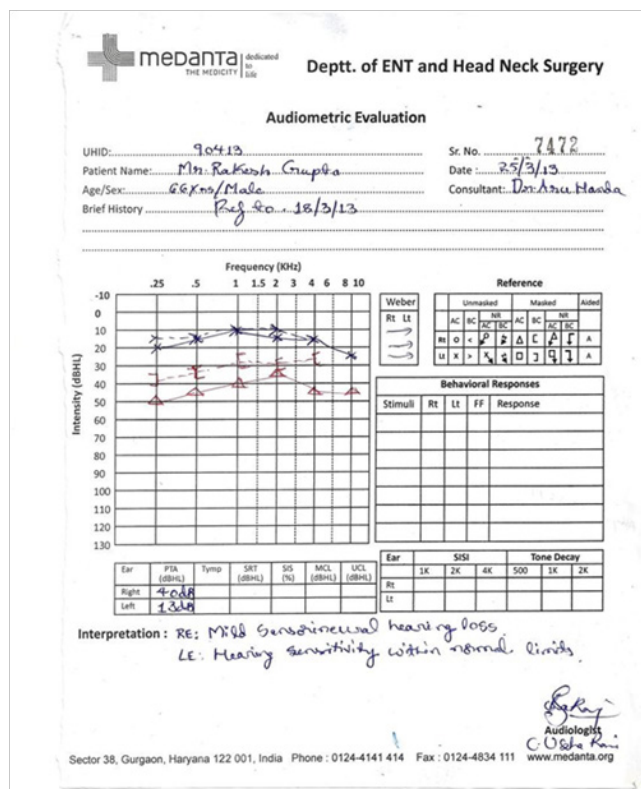 medanta dedicated to life
THE MEDICITY
Deptt. of ENT and Head Neck Surgery
Audiometric Evaluation
UHID: 90413 Sr. No. 7472
Patient Name: Mr. Rakesh Gupta Date: 25/3/13
Age/Sex: 66 Yrs/Male Consultant: Dr. Anu Handa
Brief History Ref to. 18/3/13
Frequency (KHz)
.25 .5 1 1.5 2 3 4 6 8 10
Intensity (dBHL)
-10
0
10
20
30
40
50
60
70
80
90
100
110
120
130
Weber
Rt Lt
Reference
Unmasked Masked Aided
AC BC NR AC BC NR
AC BC AC BC
Rt O < Δ [ A
Lt X > □ ] A
Behavioral Responses
Stimuli Rt Lt FF Response
Ear PTA (dBHL) Tymp SRT (dBHL) SIS (%) MCL (dBHL) UCL (dBHL)
Right 40dB
Left 13dB
Ear SISI Tone Decay
1K 2K 4K 500 1K 2K
Rt
Lt
Interpretation : RE: Mild Sensorineural hearing loss
LE: Hearing sensitivity within normal limits
Audiologist
Sector 38, Gurgaon, Haryana 122 001, India Phone : 0124-4141 414 Fax : 0124-4834 111 www.medanta.org